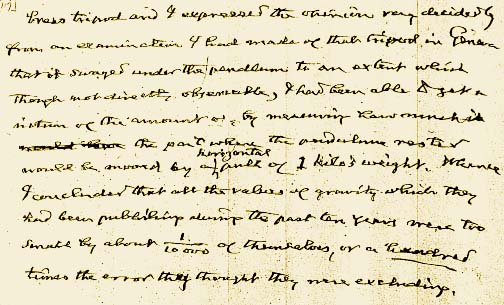 brass tripod and I expressed the opinion very decidedly
from an examination I had made of that tripod in Geneva
that it swayed under the pendulum to an extent which
though not directly observable, I had been able to get a
notion of the amount of, by measuring how much it
would have the part where the pendulum rested
horizontal
would be moved by a pull of 1 kilo's weight. Whence
I concluded that all the values of gravity which they
had been publishing during the past ten years were too
small by about 1/10000 of themselves, or a hundred
times the error they thought they were excluding.